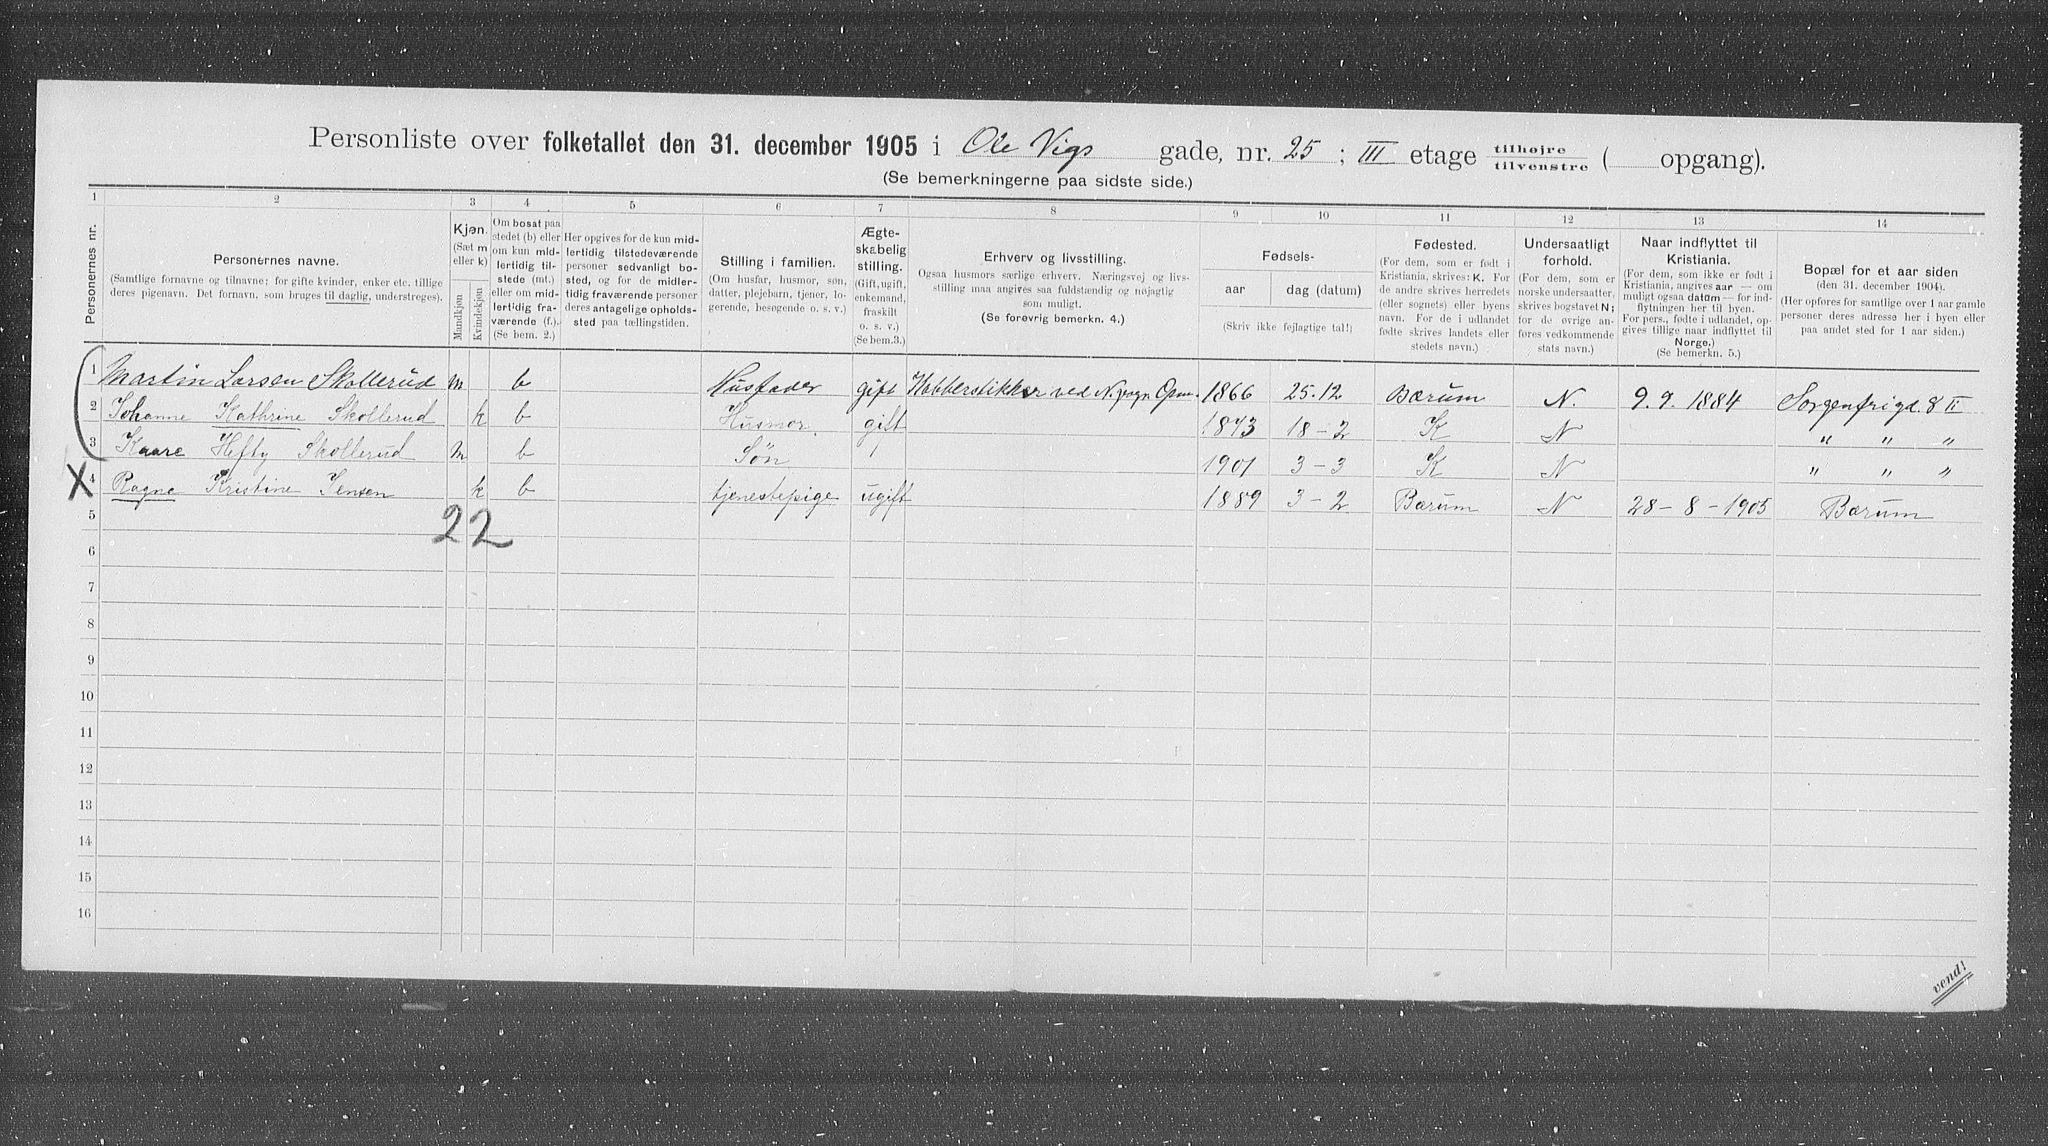 Personliste over folketallet den 31. december 1905 i Ole Vigs gade, nr. 25 ; III etage tilhøjre tilvenstre ( opgang).
(Se bemerkningerne paa sidste side.)
1 2 3 4 5 6 7 8 9 10 11 12 13 14
Personernes nr.
Personernes navne.
(Samtlige fornavne og tilnavne; for gifte kvinder, enker etc. tillige
deres pigenavn. Det fornavn, som bruges til daglig, understreges).
Kjøn.
(Sæt m
eller k)
Mandkjøn
Kvindekjøn
Om bosat paa
stedet (b) eller
om kun mid-
lertidig til-
stede (mt.)
eller om mid-
lertidig fra-
værende (f.).
(Se bem. 2.)
Her opgives for de kun mid-
lertidig tilstedeværende
personer sedvanligt bo-
sted, og for de midler-
tidig fraværende personer
deres antagelige opholds-
sted paa tællingstiden.
Stilling i familien.
(Om husfar, husmor, søn,
datter, plejebarn, tjener, lo-
gerende, besøgende o. s. v.)
Ægte-
skabelig
stilling.
(Gift, ugift,
enkemand,
fraskilt
o. s. v.)
(Se bem.3.)
Erhverv og livsstilling.
Ogsaa husmors særlige erhverv. Næringsvej og livs-
stilling maa angives saa fuldstændig og nøjagtig
som muligt.
(Se forøvrig bemerkn. 4.)
Fødsels-
aar dag (datum)
(Skriv ikke fejlagtige tal!)
Fødested.
(For dem, som er født i
Kristiania, skrives: K. For
de andre skrives herredets
(eller sognets) eller byens
navn. For de i udlandet
fødte skrives landets eller
stedets navn.)
Undersaatligt
forhold.
(For dem, som er
norske undersaatter,
skrives bogstavet N;
for de øvrige an-
føres vedkommende
stats navn.)
Naar indflyttet til
Kristiania.
(For dem, som ikke er født i
Kristiania, angives aar — om
muligt ogsaa datum — for ind-
flytningen her til byen.
For pers., fødte i udlandet, op-
gives tillige naar indflyttet til
Norge.)
(Se bemerkn. 5.)
Bopæl for et aar siden
(den 31. december 1904).
(Her opføres for samtlige over 1 aar gamle
personer deres adresse her i byen eller
paa andet sted for 1 aar siden.)
1 Martin Larsen Skollerud m b Husfader gift Kobberstikker ved N. 1866 25.12 Bærum N. 9.9.1884 Sorgenfrigd. 8 II
2 Johanne Kathrine Skollerud k b Husmor. gift 1873 18-2 K N " " "
3 Kaare Hefty Skollerud m b Søn 1901 3-3 K N " " "
X 4 Ragne Kristine Jensen k b tjenestepige ugift 1889 3-2 Bærum N 28-8-1905 Bærum
5
22
6
7
8
9
10
11
12
13
14
15
16
vend!